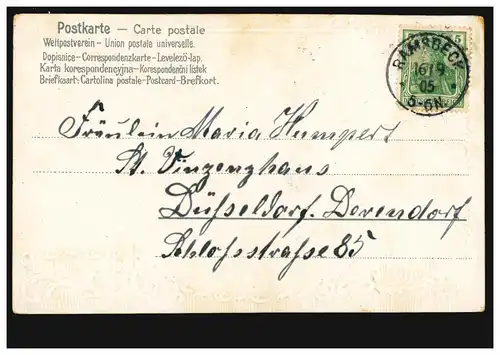 Postkarte — Carte postale
Weltpostverein – Union postale universelle.
Dopisnice – Correspondenzkarte – Levelező-lap.
Karta korespondencyjna – Korespondenční lístek
Briefkaart-Cartolina postale-Postcard-Brefkort.
5
RAMSBECK
16/9
05
5-6N.
Fräulein Maria Humpert
St. Vinzenzhaus
Düsseldorf. Derendorf
Schlossstraße 85